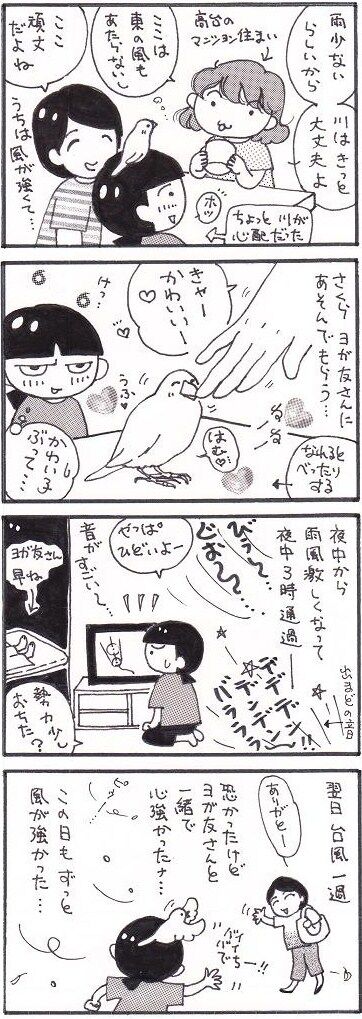 雨少ない
らしいから
川はきっと
大丈夫よ
高台の
マンション住まい
ここは
東の風も
あたらないし
ここ
頑丈
だよね
うちは
風が強くて…
ホッ
ちょっと川が
心配だった
さくら ヨガ友さんに
あそんでもらう…
キャー
かわいいー
けっ…
うふ
はむ…
なれると
べったり
する
かわい子
ぶって…
夜中から
雨風激しくなって
夜中3時通過
びゅー
どおー
やっぱ
ひどいよー
音が
すごい〜
ヨガ友さん
早ね
勢力少し
おちた?
デデデン
デンデン
バラララ
雨などの音
翌日 台風一過
ありがとー
恐かったけど
ヨガ友さんと
一緒で
心強かったナ…
バイバイ
この日もずっと
風が強かった…